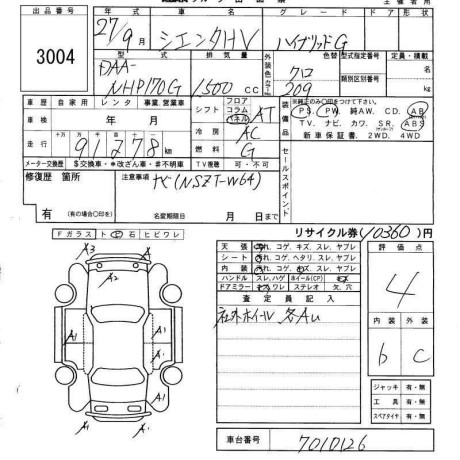 出品番号 年式 車名 グレード ドア 形状
3004
27/9月 シエンタHV ハイブリッドG
型式 排気量 外装色 色替 型式指定番号 定員・積載
DAA-NHP170G 1500cc クロ 209 類別区分番号 名 kg
車歴 自家用 レンタ 事業、営業車 シフト フロア コラム パネル AT
車検 年 月 冷房 AC
走行 十万 万 千 百 十 一
91278km 燃料 G
メーター交換歴 $交換車・*改ざん車・#不明車 TV視聴 可・不可
装備品 ※純正のみ○印をつけて下さい。
PS. PW. 純AW. CD. AB
TV. ナビ. カワ. SR. ABS
新車保証書. 2WD. 4WD
セールスポイント
修復歴 箇所 注意事項 ナビ(NSZT-W64)
有 (有の場合○印を) 名変期限日 月 日まで
リサイクル券(10360)円
Fガラス ト ビ 石 ヒビワレ
天張 汚れ、コゲ、キズ、スレ、ヤブレ
シート 汚れ、コゲ、ヘタリ、スレ、ヤブレ
内装 汚れ、コゲ、キズ、スレ、ヤブレ
ハンドル スレ、ハゲ ホイール(CP) キズ
ドアミラー キズ、ワレ ステレオ 欠、穴
評価点
4
内装 外装
b C
査定員記入
社外ホイル 各AU
A3 A
A2
A1 A1
A1 A1
A1
A1 A1
ジャッキ 有・無
工具 有・無
スペアタイヤ 有・無
車台番号 7010126